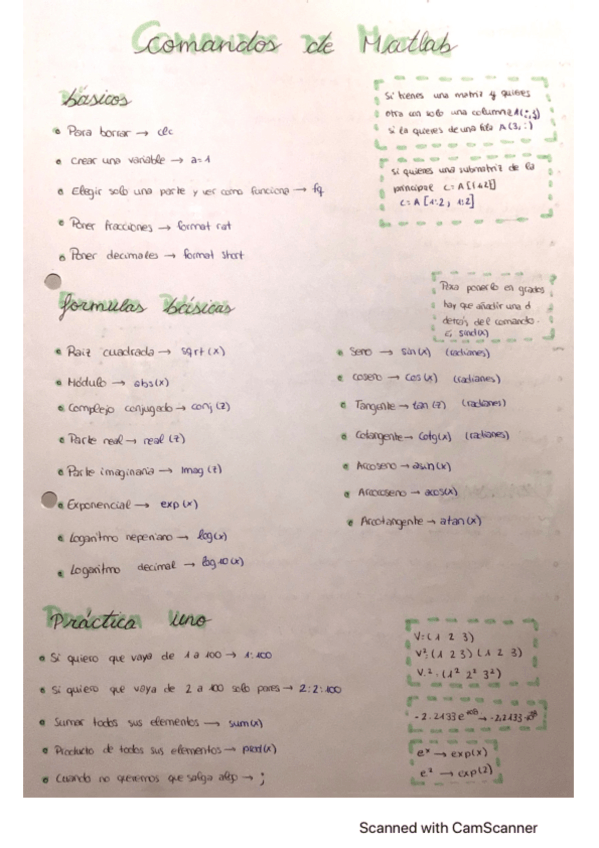 Comandos de Matlab
básicos
• Para borrar → clc
• crear una variable → a=1
• Elegir solo una parte y ver como funciona → fq
• Poner fracciones → format rat
• Poner decimales → format short
Si tienes una matriz y quieres
otra un solo una columna A(:,3)
si la quieres de una fila A(3,:)
si quieres una submatriz de la
principal C=A[1:2]
C=A[1:2, 1:2]
fórmulas básicas
Para ponerlo en grados
hay que añadir una d
detrás del comando.
sind(x)
• Raiz cuadrada → sqrt(x)
• Módulo → abs(x)
• Complejo conjugado → conj(z)
• Parte real → real(z)
• Parte imaginaria → Imag(z)
• Exponencial → exp(x)
• Logaritmo neperiano → log(x)
• Logaritmo decimal → log10(x)
• Seno → sin(x) (radianes)
• coseno → cos(x) (radianes)
• Tangente → tan(z) (radianes)
• Cotangente → cotg(x) (radianes)
• Arcoseno → (x)
• → acos(x)
• Arcotangente → atan(x)
Práctica uno
• Si quiero que vaya de 1 a 100 → 1:100
• Si quiero que vaya de 2 a 100 solo pares → 2:2:100
• Sumar todos sus elementos → sum(x)
• Producto de todos sus elementos → prod(x)
• Cuando no queremos que salga algo → ;
V=(1 2 3)
V²=(1 2 3)(1 2 3)
V.²=(1² 2² 3²)
-2.2433e → -2.2433
eˣ → exp(x)
e² → exp(2)
Scanned with CamScanner